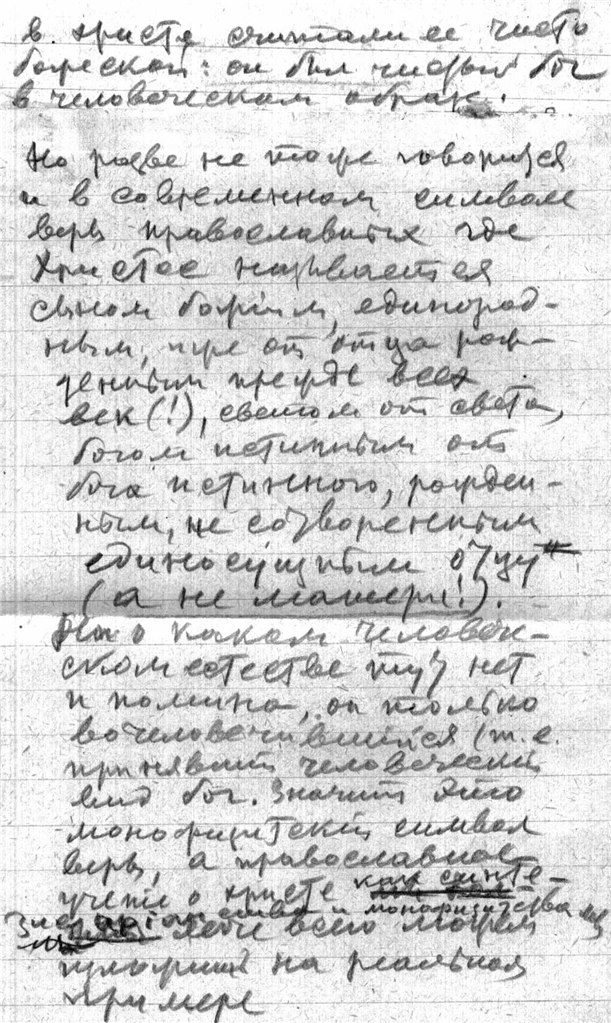 в христе считали ее чисто
божеской: он был чистый бог
в человеческом образе.
Но разве не тоже говорится
и в современном символе
веры православных где
Христос называется
сыном божіим, единород-
ным, иже от отца рож-
денным прежде всех
век (!), светом от света,
богом истинным от
бога истинного, рожден-
ным, не сотворенным
единосущным отцу
(а не матери!).
Ни о каком человече-
ском естестве тут нет
и помина, он только
вочеловечившийся (т.е.
принявший человеческий
вид бог. Значит это
монофизитский символ
веры, а православное
учение о христе как синте-
зе арианства и монофизитства мы
легче всего можем
изложить на реальном
примере